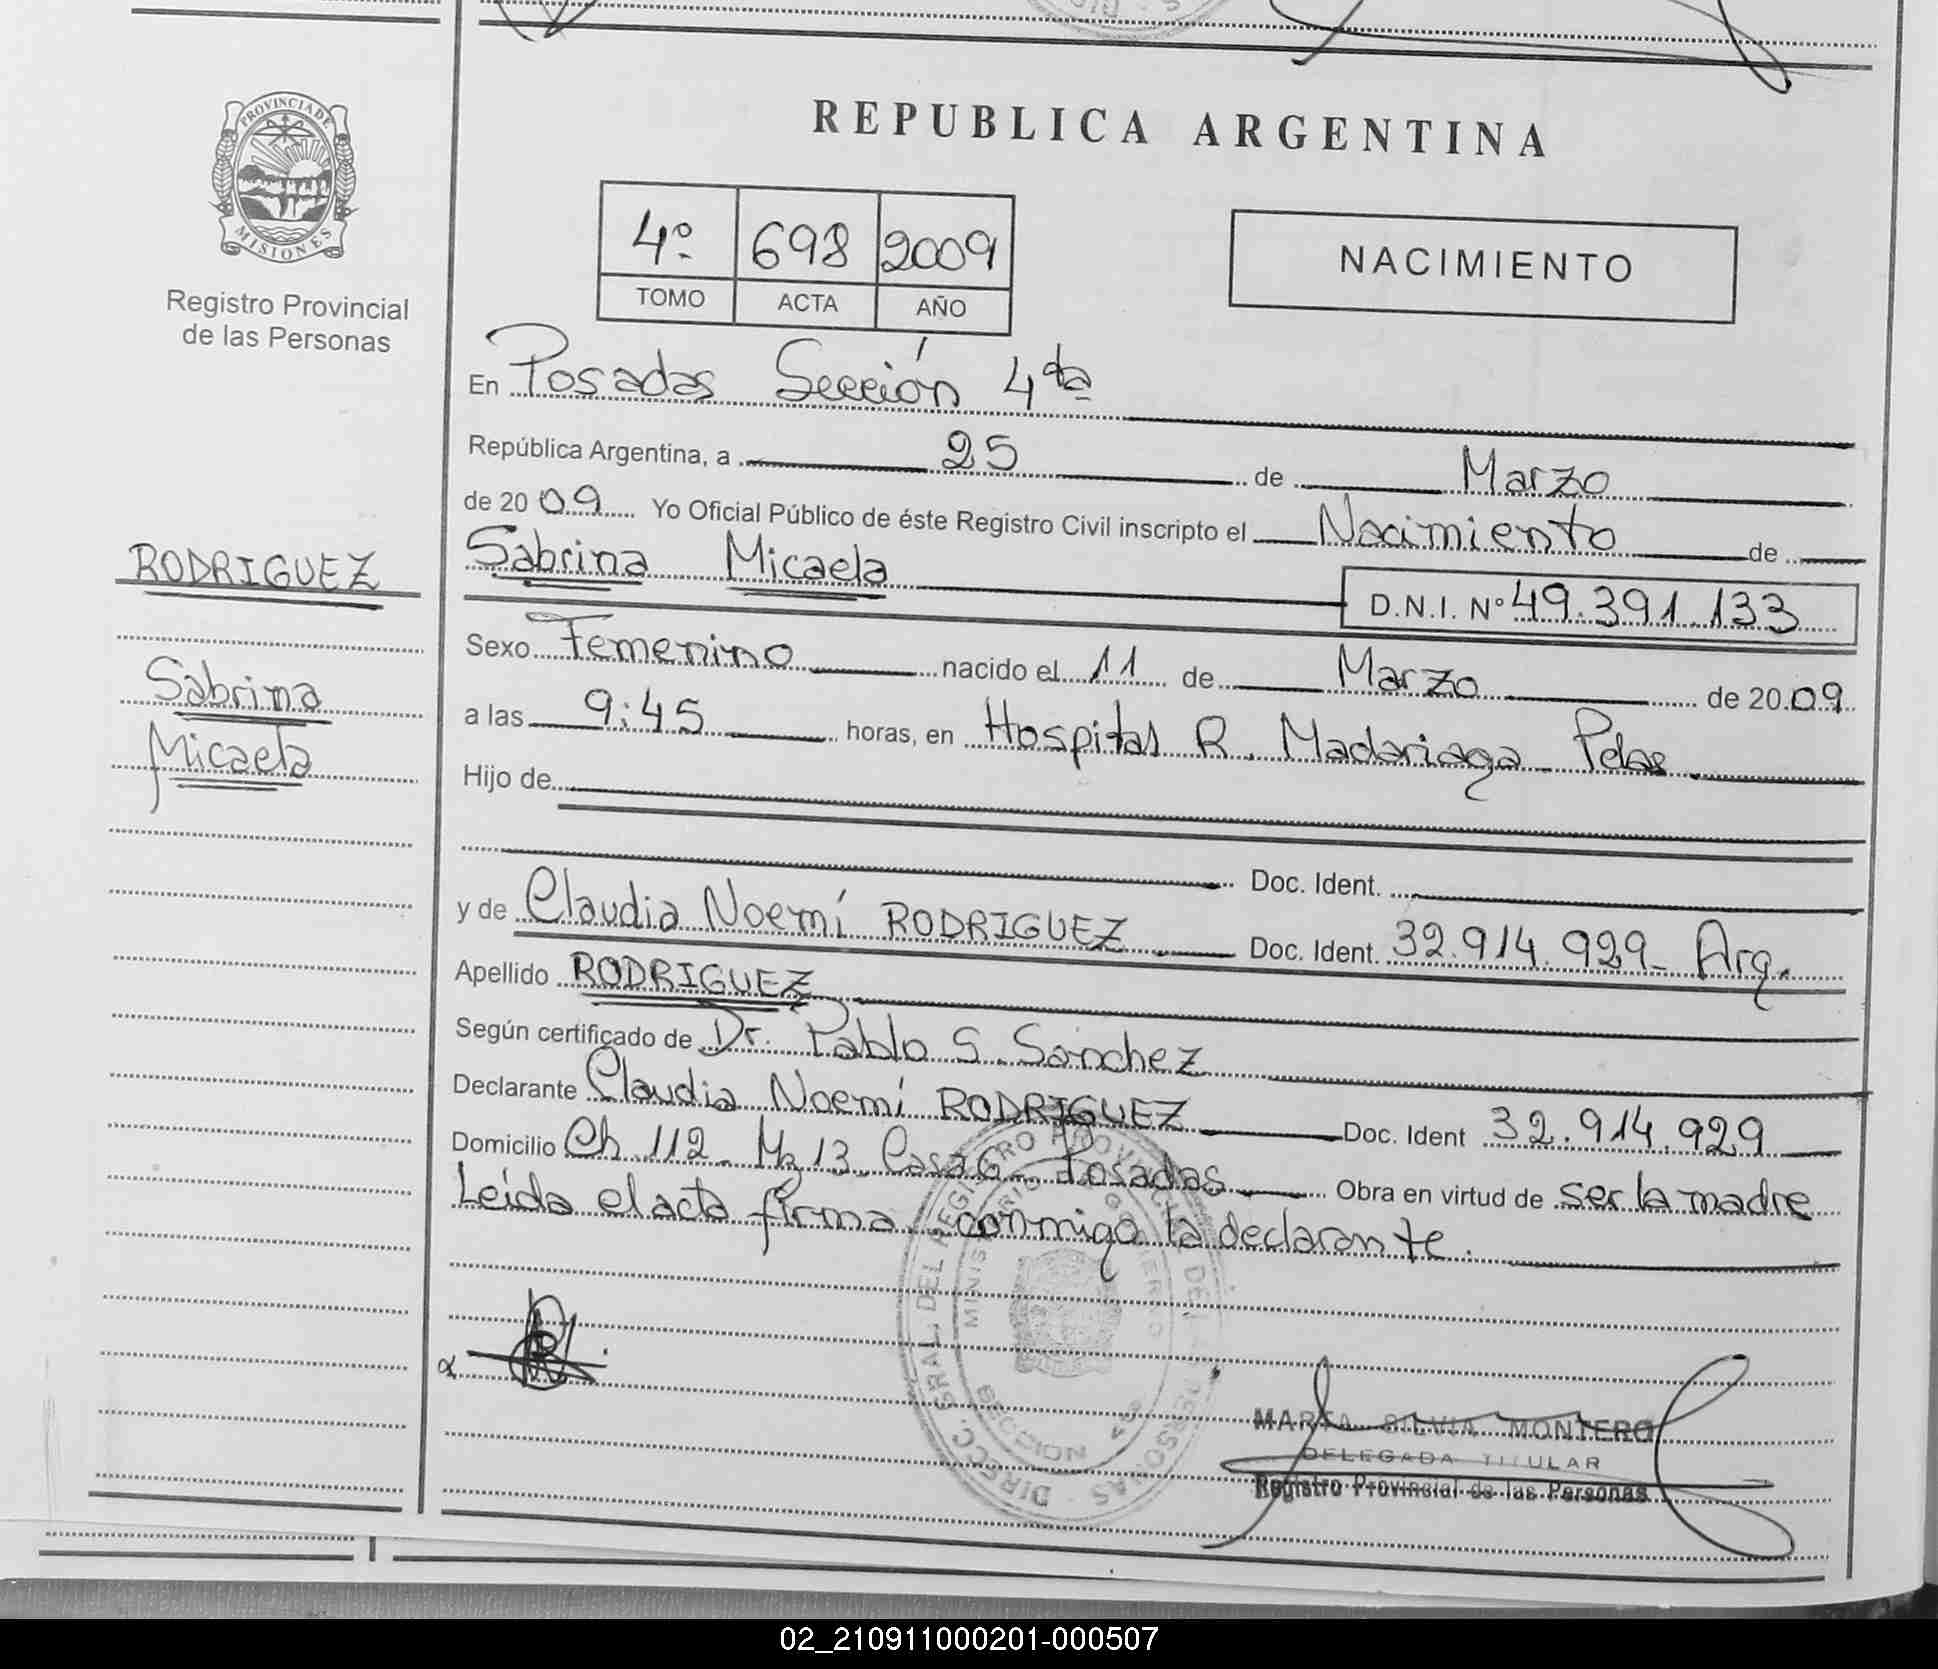 PROVINCIA DE
MISIONES
Registro Provincial
de las Personas
RODRIGUEZ
Sabrina
Micaela
REPUBLICA ARGENTINA
4º 698 2009
TOMO ACTA AÑO
NACIMIENTO
En Posadas Sección 4ta
República Argentina, a 25 de Marzo
de 2009 Yo Oficial Público de éste Registro Civil inscripto el Nacimiento de
Sabrina Micaela
D.N.I. Nº 49.391.133
Sexo Femenino nacido el 11 de Marzo de 2009
a las 9:45 horas, en Hospital R. Madariaga Pdas
Hijo de
Doc. Ident.
y de Claudia Noemí RODRIGUEZ Doc. Ident. 32.914.929 - Arg.
Apellido RODRIGUEZ
Según certificado de Dr. Pablo S. Sánchez
Declarante Claudia Noemí RODRIGUEZ Doc. Ident 32.914.929
Domicilio Ch 112 - Mz 13 Casa 6 Posadas Obra en virtud de ser la madre
Leída el acta firma conmigo la declarante.
DIRECC. GRAL. DEL REGISTRO PROVINCIAL DE LAS PERSONAS
MINISTERIO DE GOBIERNO
MARTA SILVIA MONTERO
DELEGADA TITULAR
Registro Provincial de las Personas
02_210911000201-000507